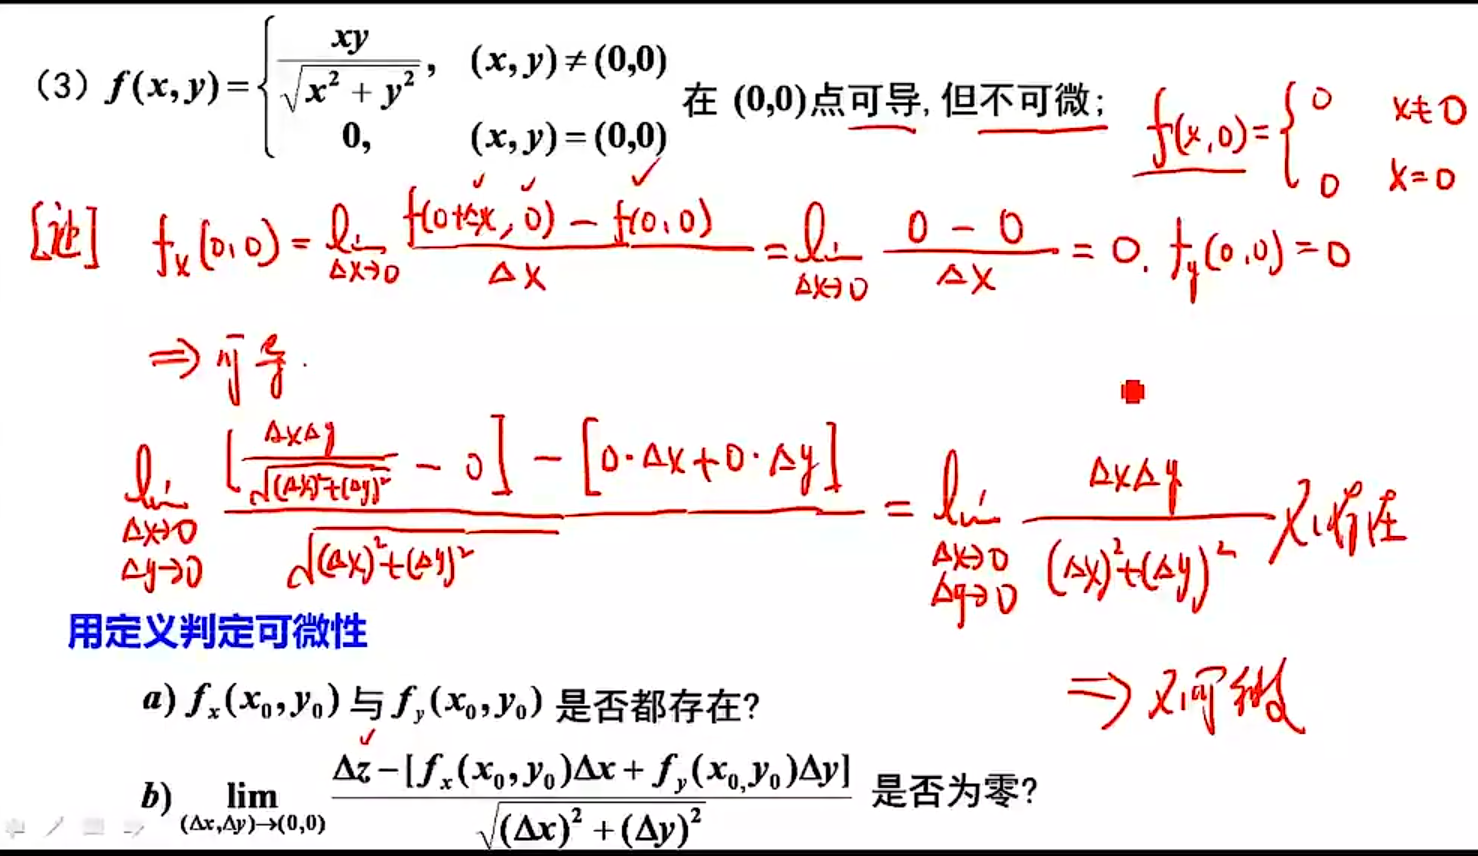 (3) f(x,y)={ xy/√(x²+y²), (x,y)≠(0,0)
0, (x,y)=(0,0) 在 (0,0)点可导, 但不可微;
f(x,0)={ 0 x≠0
0 x=0
[证] fx(0,0)=lim Δx→0 (f(0+Δx,0)-f(0,0))/Δx = lim Δx→0 (0-0)/Δx = 0. fy(0,0)=0
⇒ 可导.
lim Δx→0 Δy→0 ([ΔxΔy/√((Δx)²+(Δy)²) - 0] - [0·Δx+0·Δy])/√((Δx)²+(Δy)²) = lim Δx→0 Δy→0 ΔxΔy/((Δx)²+(Δy)²) 不存在
用定义判定可微性
⇒ 不可微
a) fx(x₀,y₀) 与 fy(x₀,y₀) 是否都存在?
b) lim (Δx,Δy)→(0,0) (Δz-[fx(x₀,y₀)Δx+fy(x₀,y₀)Δy])/√((Δx)²+(Δy)²) 是否为零?